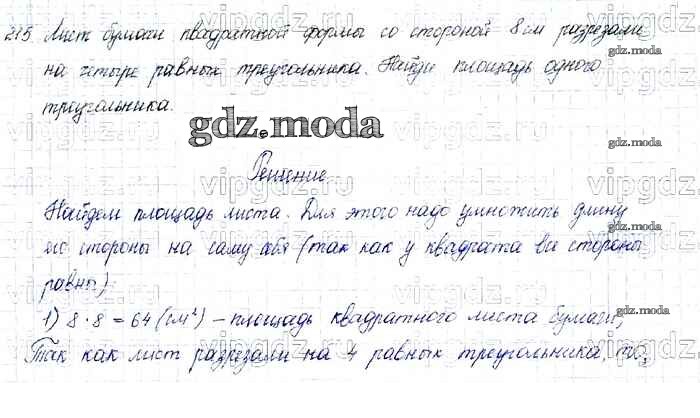 215 Лист бумаги квадратной формы со стороной 8 см разрезали
на четыре равных треугольника. Найди площадь одного
треугольника.
gdz.moda
Решение
Найдем площадь листа. Для этого надо умножить длину
его стороны на саму себя (так как у квадрата все стороны
равны)
1) 8 · 8 = 64 (см²) – площадь квадратного листа бумаги,
Так как лист разрезали на 4 равных треугольника, то,